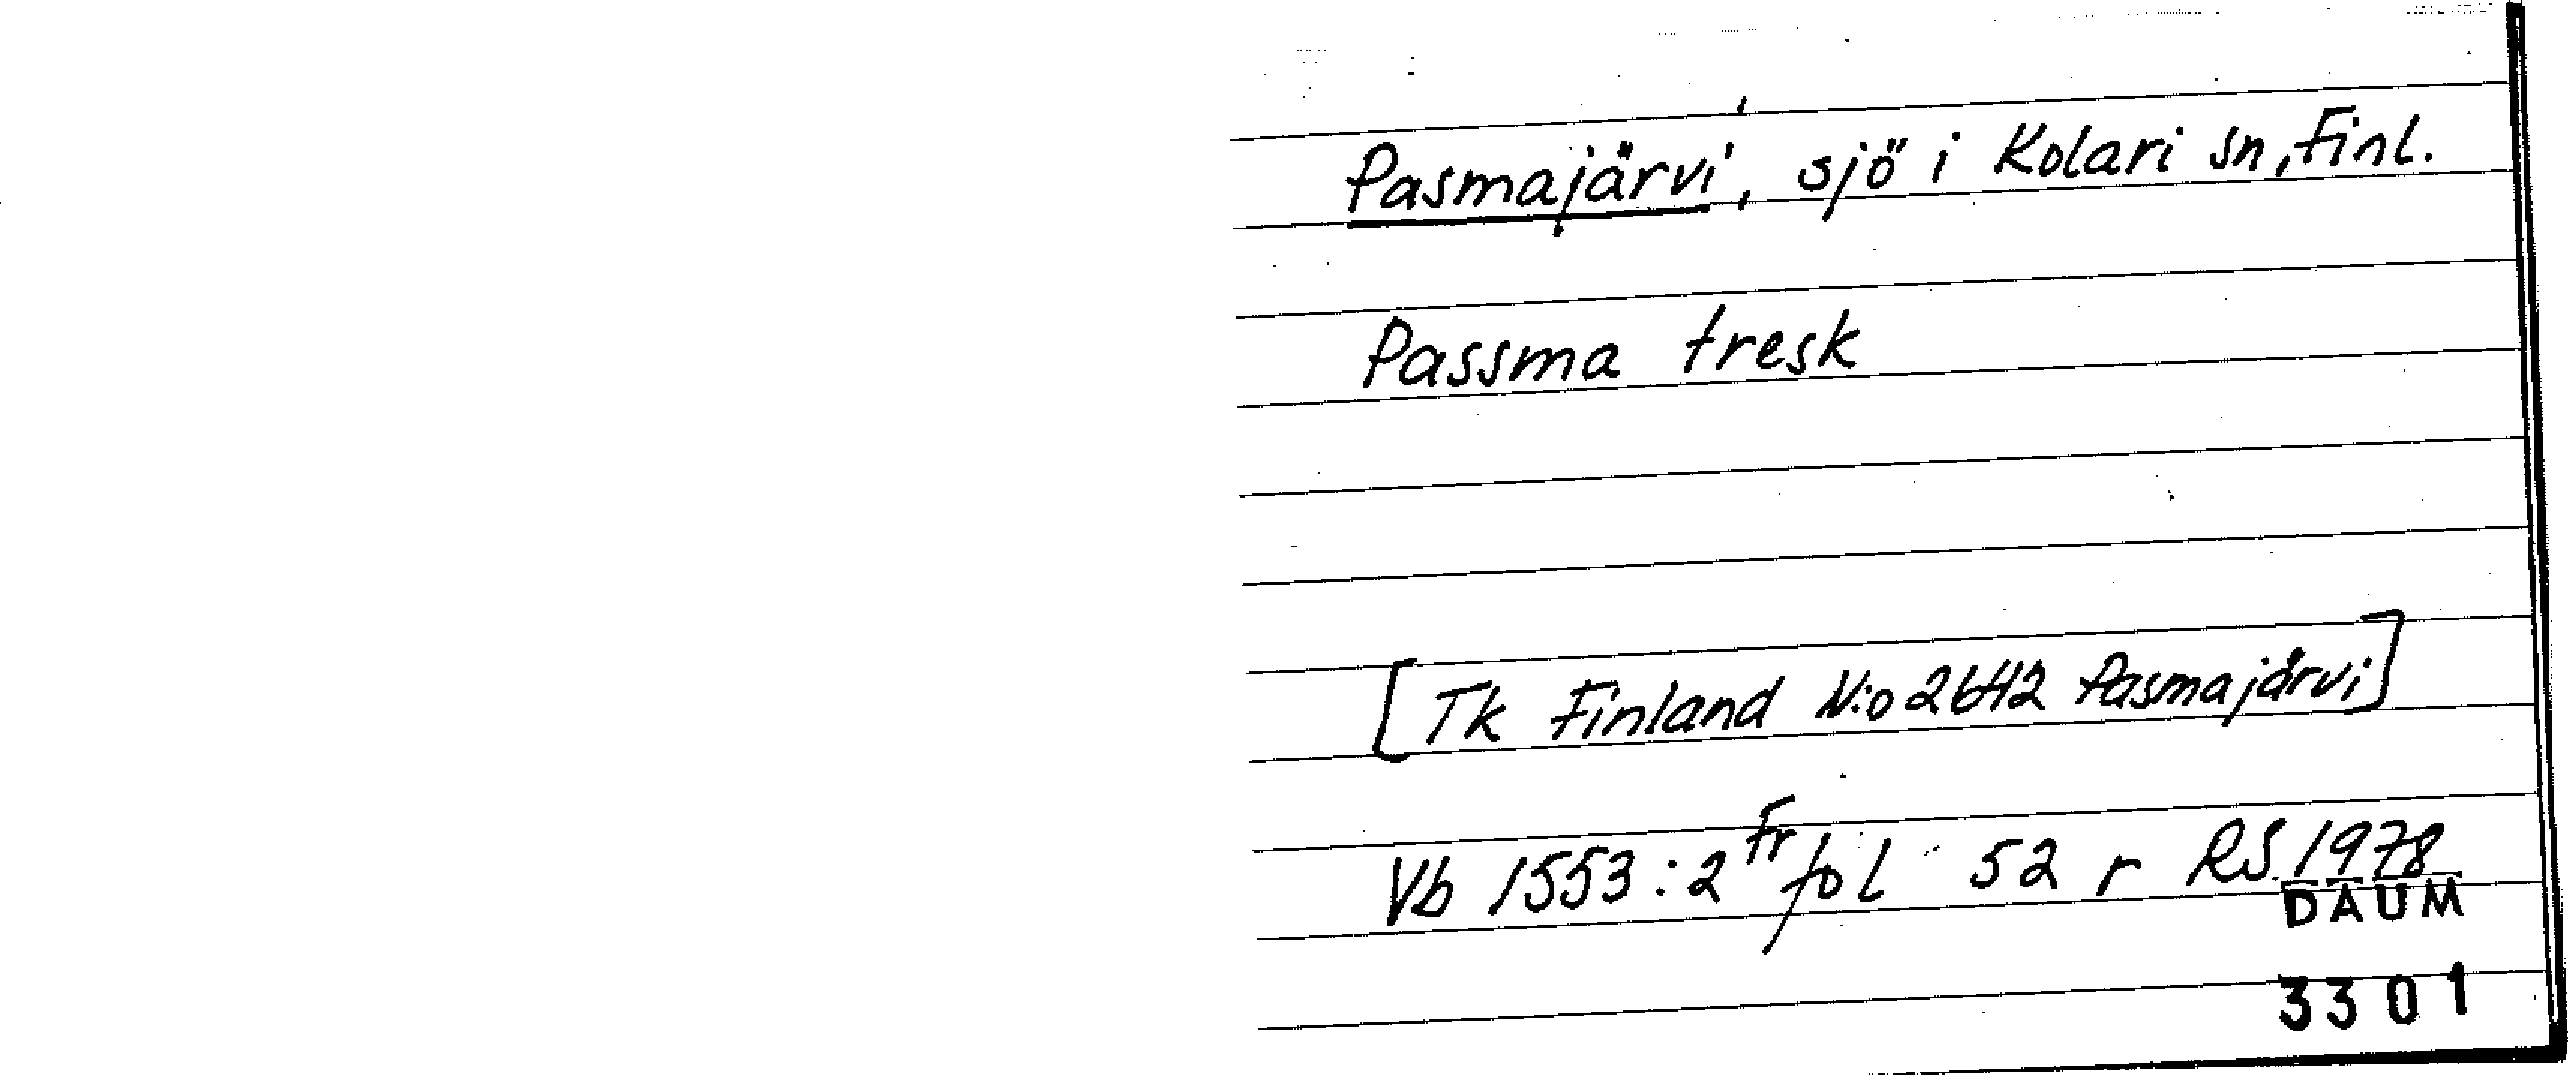 Pasmajärvi, sjö i Kolari sn, Finl.
Passma tresk
[Tk Finland N:o 2642 Pasmajärvi]
Vb 1553:2 Fr fol 52 r RS 1978
DAUM
3301